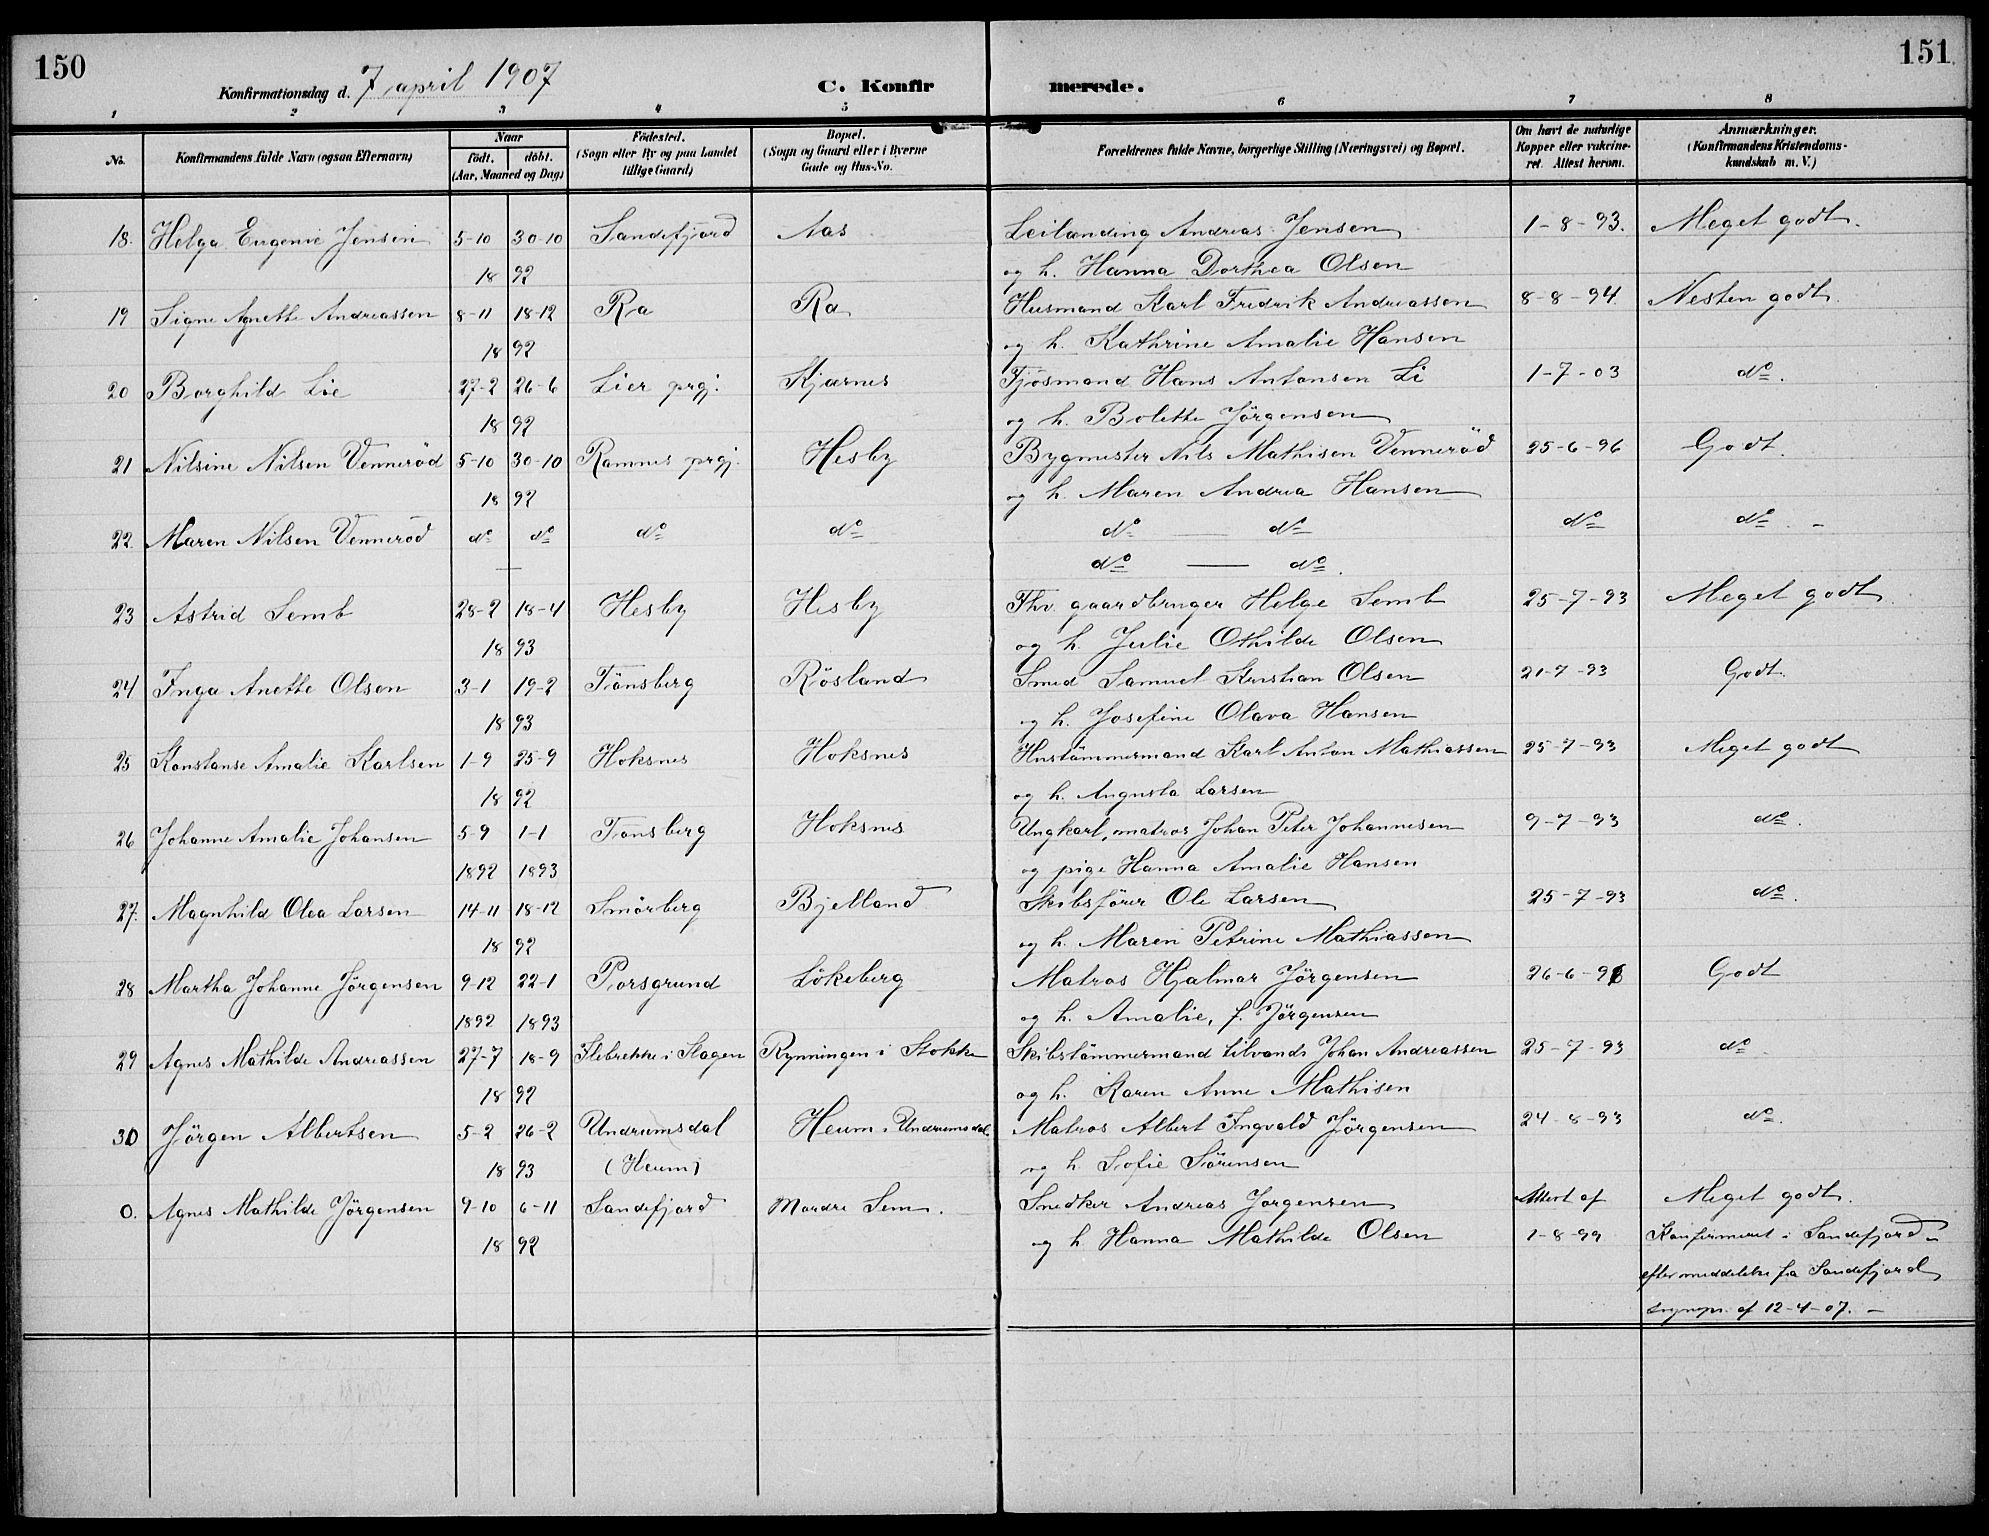 150
151
Konfirmationsdag d. 7 april 1907
C. Konfirmerede.
1 2 3 4 5 6 7 8
No.
Konfirmandens fulde Navn (ogsaa Efternavn)
Naar
født. døbt.
(Aar, Maaned og Dag)
Födested.
(Sogn eller By og paa Landet
tillige Gaard)
Bopæl.
(Sogn og Gaard eller i Byerne
Gade og Hus-No.
Forældrenes fulde Navne, borgerlige Stilling (Næringsvei) og Bopæl.
Om havt de naturlige
Kopper eller vakcine-
ret. Attest herom.
Anmærkninger.
(Konfirmandens Kristendoms-
kundskab m. V.)
18. Helga Eugenie Jensen 5-10 30-10 Sandefjord Aas Leilænding Andreas Jensen 1-8-93. Meget godt.
18 92 og h. Hanna Dorthea Olsen
19 Signe Agnette Andreassen 8-11 18-12 Ra Ra Husmand Karl Fredrik Andreassen 8-8-94. Nesten godt.
18 92 og h. Kathrine Amalie Hansen
20 Borghild Lie 27-2 26-6 Lier prgj. Kjærnes Fjösmand Hans Antonsen Li 1-7-03 do.
18 92 og h. Bolette Jörgensen
21 Nilsine Nilsen Venneröd 5-10 30-10 Ramnes prgj. Hesby Bygmester Nils Mathisen Venneröd 25-6-96 Godt.
18 92 og h. Maren Andrea Hansen
22. Maren Nilsen Vennerød do do do do do — do do do. –
— do — do.
23 Astrid Semb 28-2 18-4 Hesby Hesby Fhv. gaardbruger Helge Semb 25-7-93 Meget godt
18 93 og h. Julie Othilde Olsen
24 Inga Anette Olsen 3-1 19-2 Tönsberg Rösland Smed Samuel Kristian Olsen 21-7-93 Godt.
18 93 og h. Josefine Olava Hansen
25 Konstanse Amalie Karlsen 1-9 25-9 Hoksnes Hoksnes Hustömmermand Karl Anton Mathiassen 25-7-93 Meget godt
18 92 og h. Augusta Larsen
26 Johanne Amalie Johansen 5-9 1-1 Tönsberg Hoksnes Ungkarl, matros Johan Peter Johannesen 9-7-93 do.
1892 1893 og pige Hanna Amalie Hansen
27. Magnhild Olea Larsen 14-11 18-12 Smörberg Bjelland Skibsförer Ole Larsen 25-7-93 do.
18 92 og h. Maren Petrine Mathiassen
28 Martha Johanne Jörgensen 9-12 22-1 Porsgrund Lökeberg Matros Hjalmar Jörgensen 26-6-96 Godt
1892 1893 og h. Amalie, f. Jörgensen
29 Agnes Mathilde Andreassen 27-7 18-9 Slebrekke i Slagen Rynningen i Stokke Skibstömmermand tilvands Johan Andreassen 25-7-93 do
18 92 og h. Karen Anne Mathisen
30 Jörgen Albertsen 5-2 26-2 Undrumsdal Heum i Undrumsdal. Matros Albert Ingvald Jörgensen 24-8-93 do.
18 93 (Heum) og h. Sofie Sörensen
0. Agnes Mathilde Jörgensen 9-10 6-11 Sandefjord Mardre Sem. Snedker Andreas Jörgensen Attest af Meget godt.
18 92 og h. Hanna Mathilde Olsen 1-8-99 Konfirmeret i Sandefjord
efter meddelelse fra Sandefjord
sognepr. af 12-4-07. –